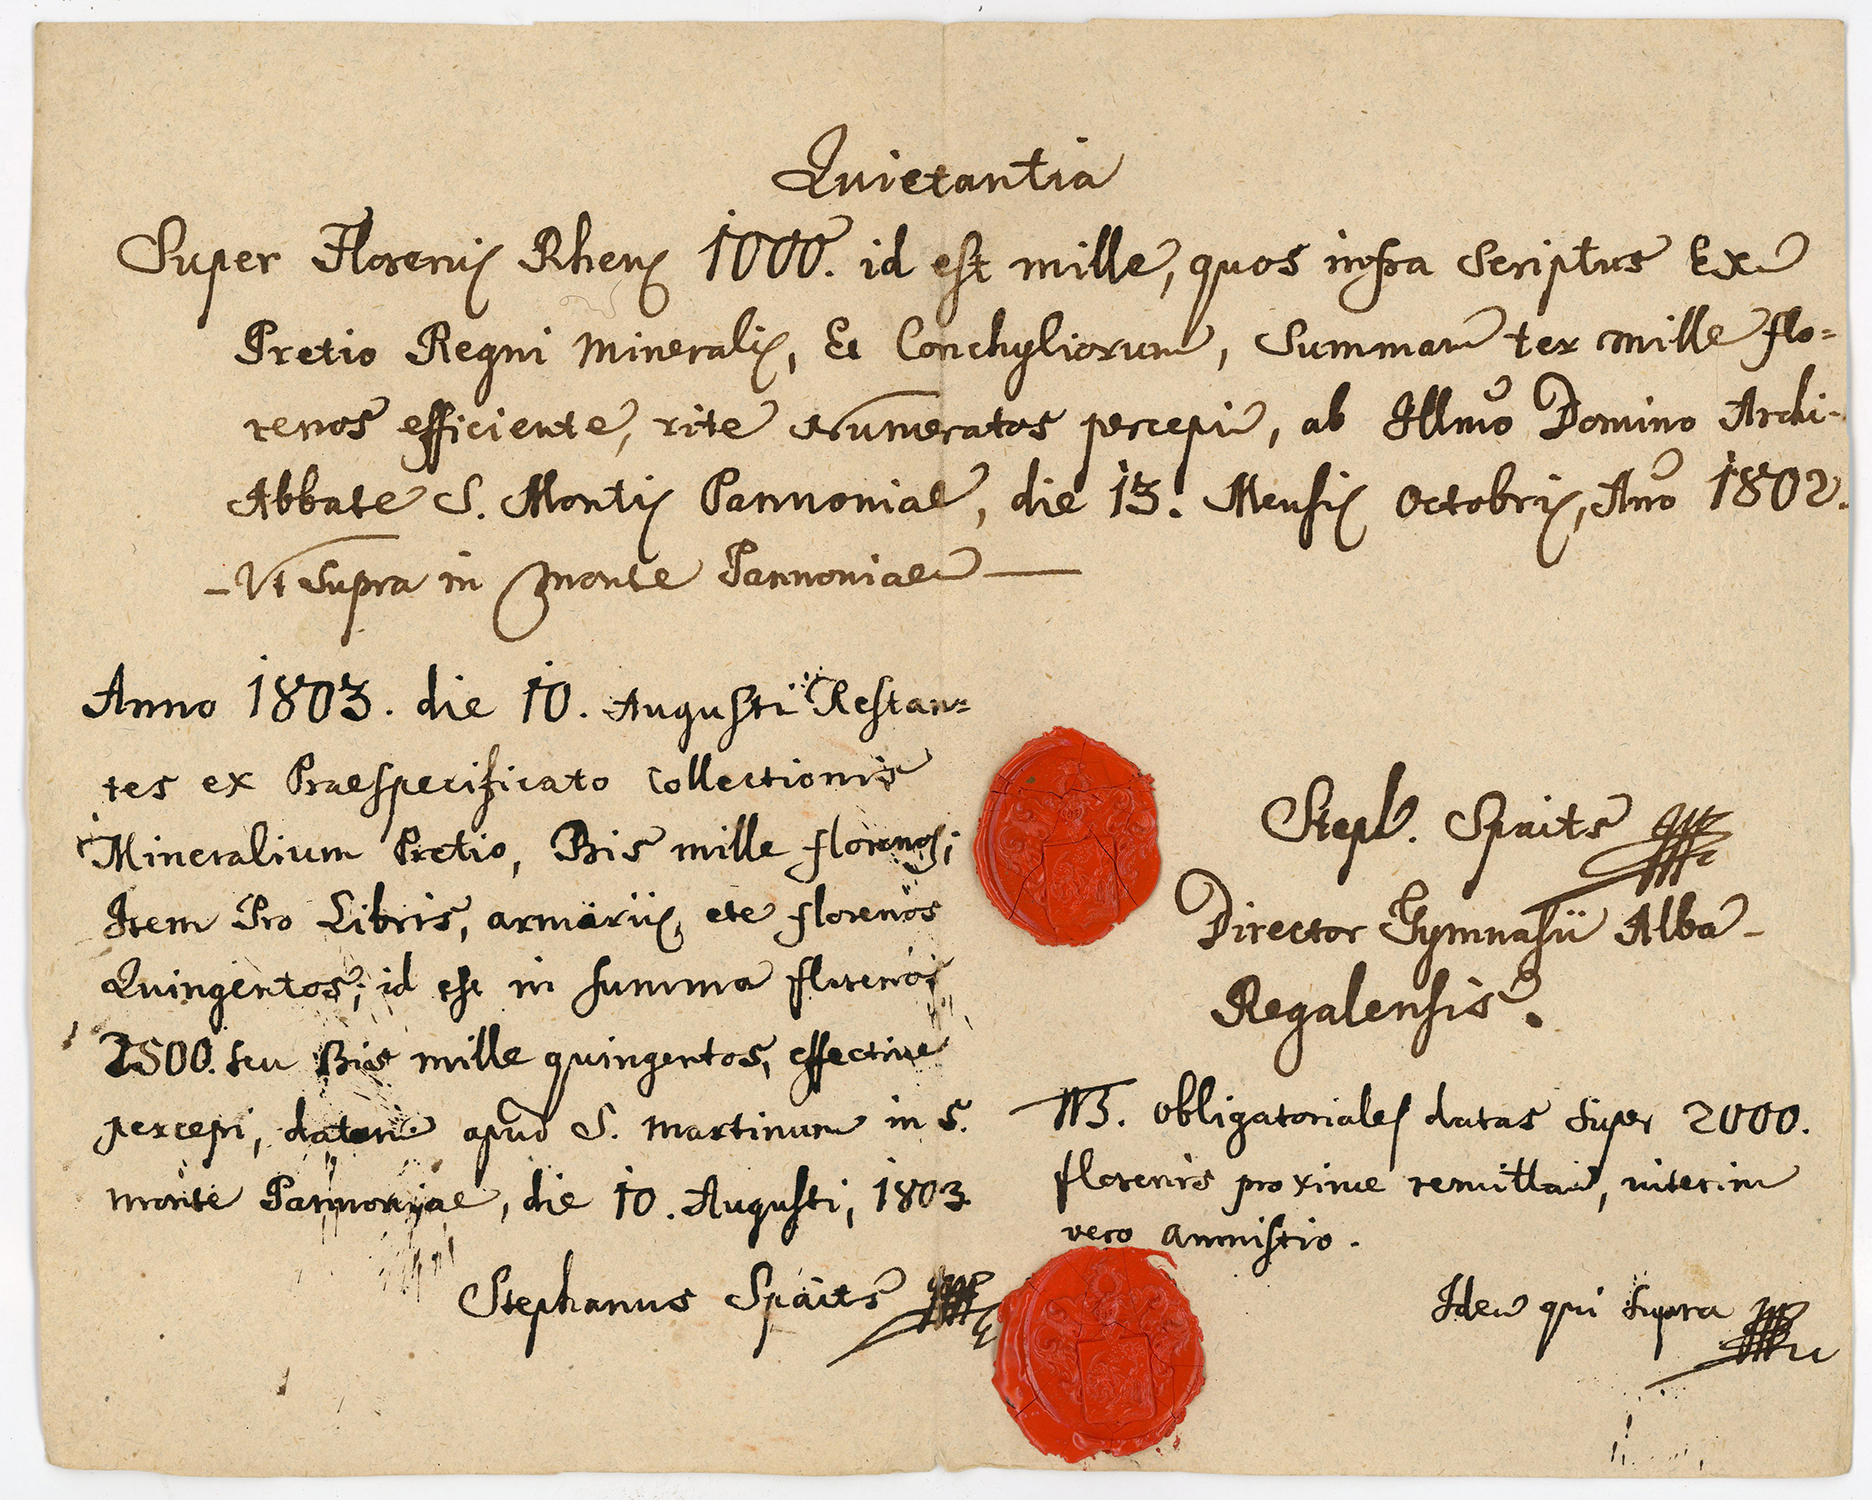 Quietantia
Super Florenis Rhens 1000. id est mille, quos infra scriptus Ex
Pretio Regni Mineralis, & Conchyliorum, Summam ter mille flo=
renos efficiente, rite Numeratos percepi, ab Illmo Domino Archi-
Abbate S. Montis Pannoniae, die 13. Mensis Octobris, Ano 1802.
- Ut Supra in Monte Pannoniae —
Anno 1803. die 10. Augusti Restan=
tes ex Praespecificato Collectionis
Mineralium Pretio, Bis mille florenos;
Item Pro Libris, armariis, etc florenos
Quingentos; id est in summa florenos
2500. seu Bis mille quingentos, effective
percepi, datum apud S. Martinum in S.
monte Pannoniae, die 10. Augusti, 1803
Stephanus Spaits
Steph. Spaits
Director Gymnasii Alba-
Regalensis.
NB. obligatoriales datas super 2000.
florenis proxime remittam, interim
vero amnistio.
Idem qui supra